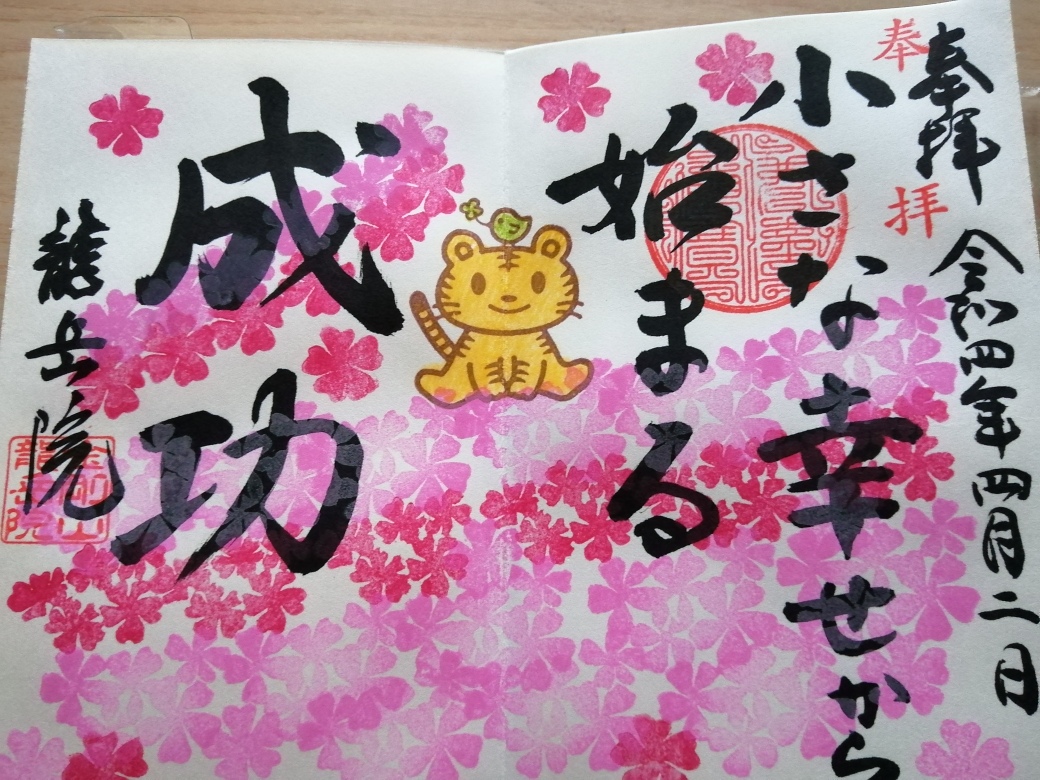 奉拝
奉拝
令和四年四月二日
小さな幸せから
始まる
成功
龍岳院
龍岳院